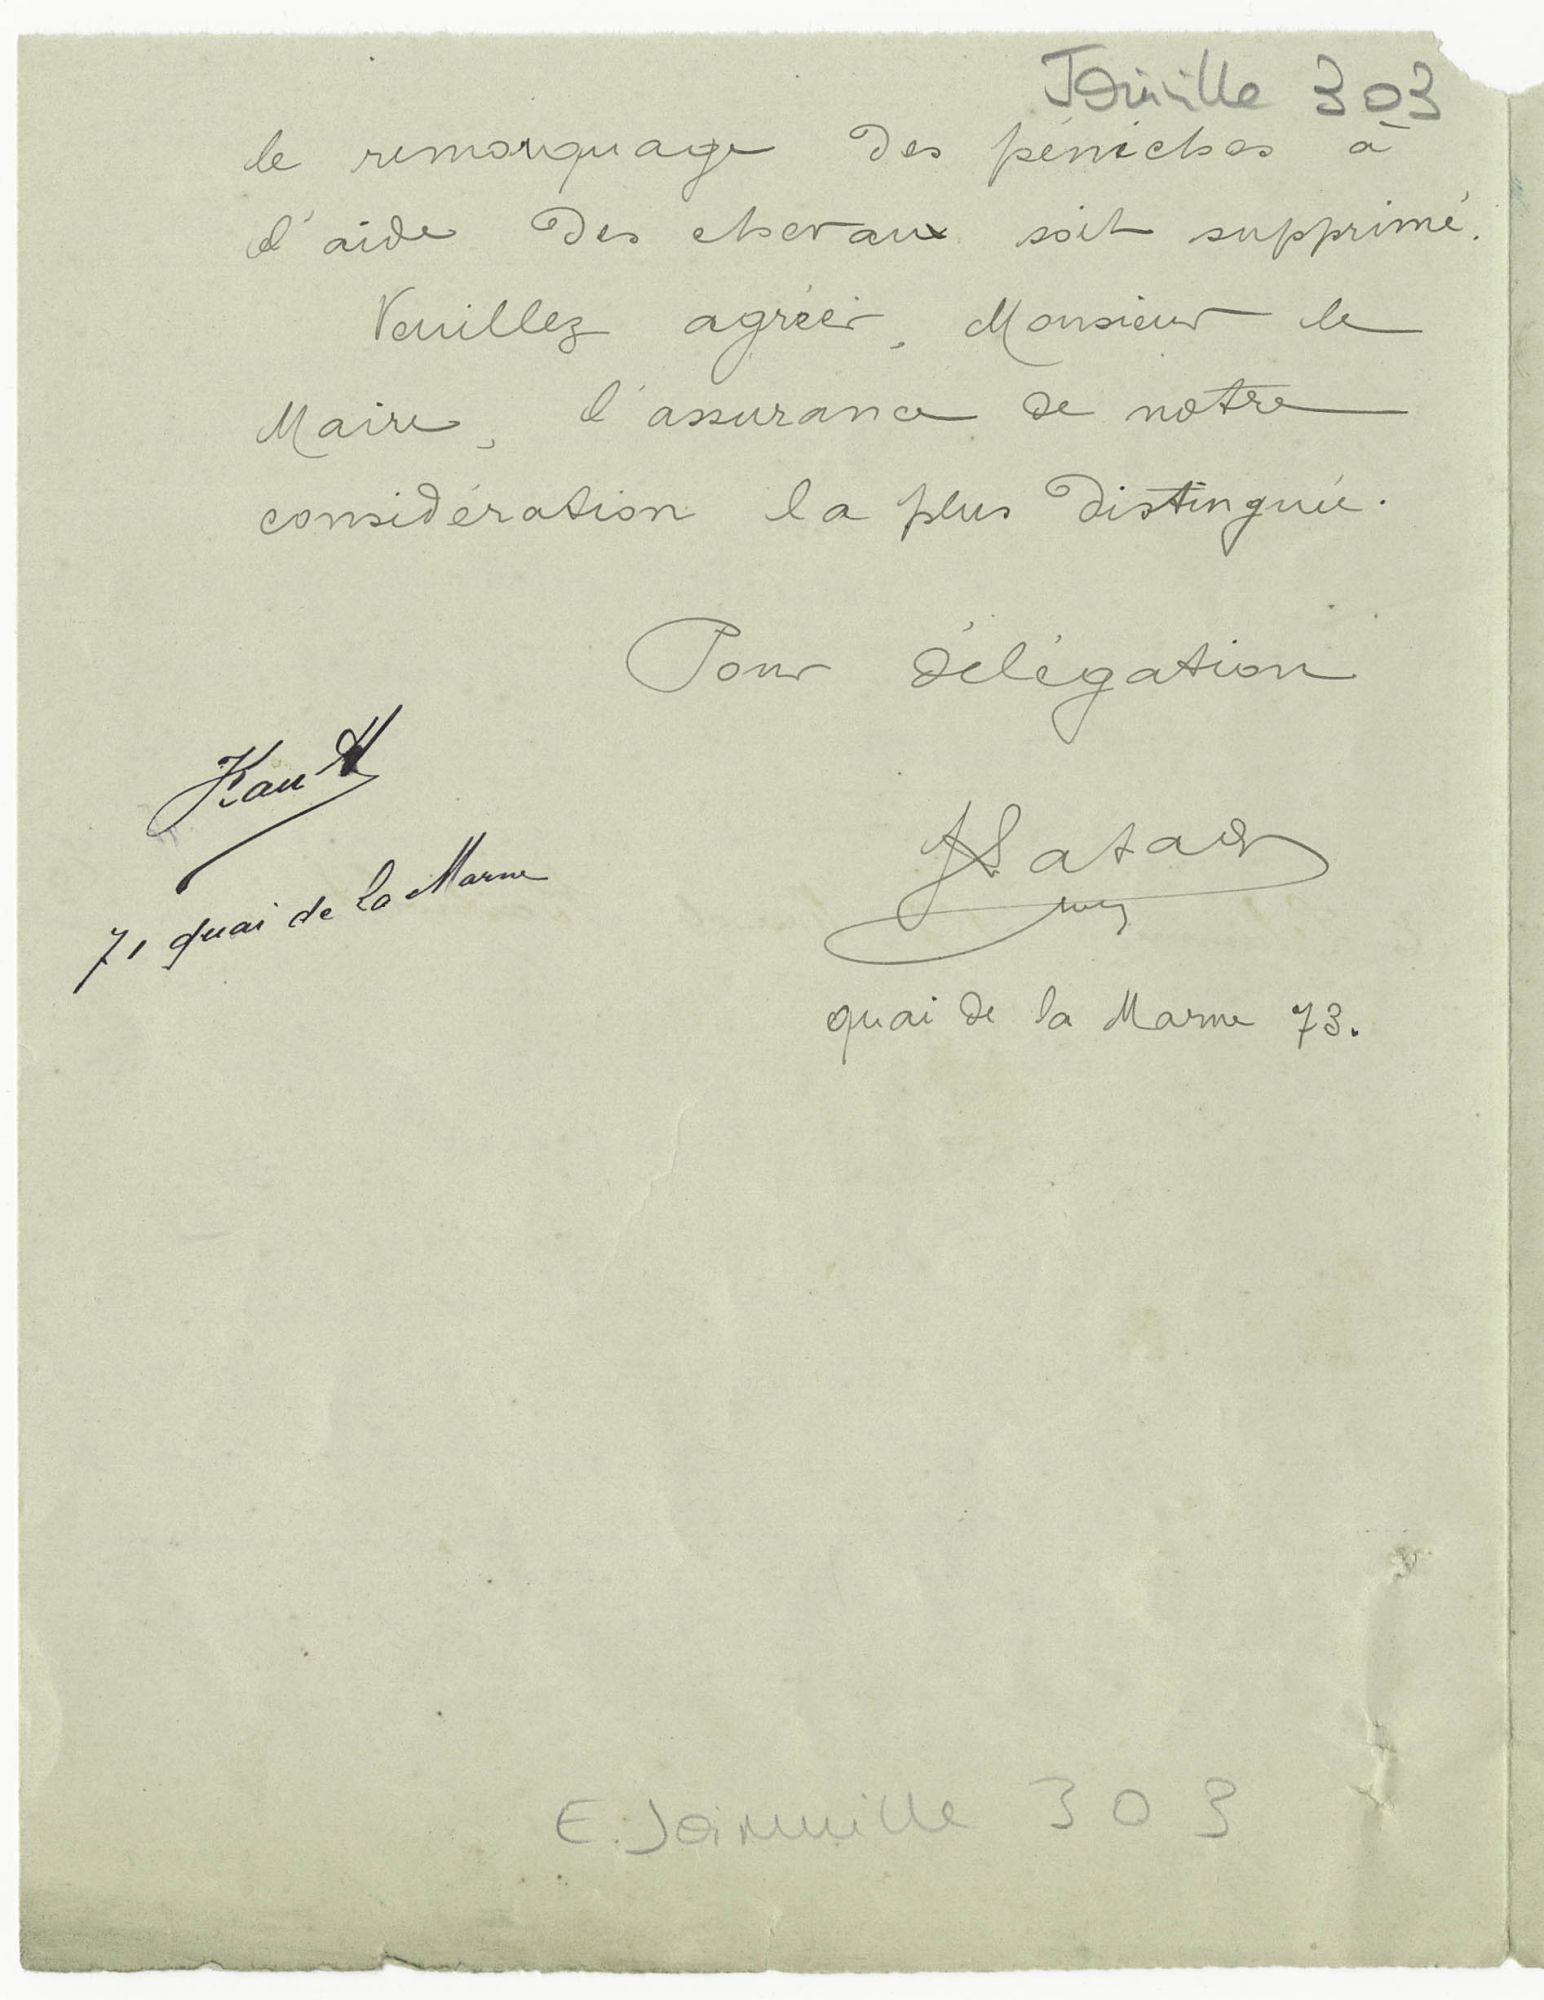 Joinville 303
le remorquage des péniches à
l'aide des chevaux soit supprimé.
Veuillez agréer, Monsieur le
Maire, l'assurance de notre
considération la plus distinguée.
Pour délégation
71 quai de la Marne
quai de la Marne 73.
E. Joinville 303